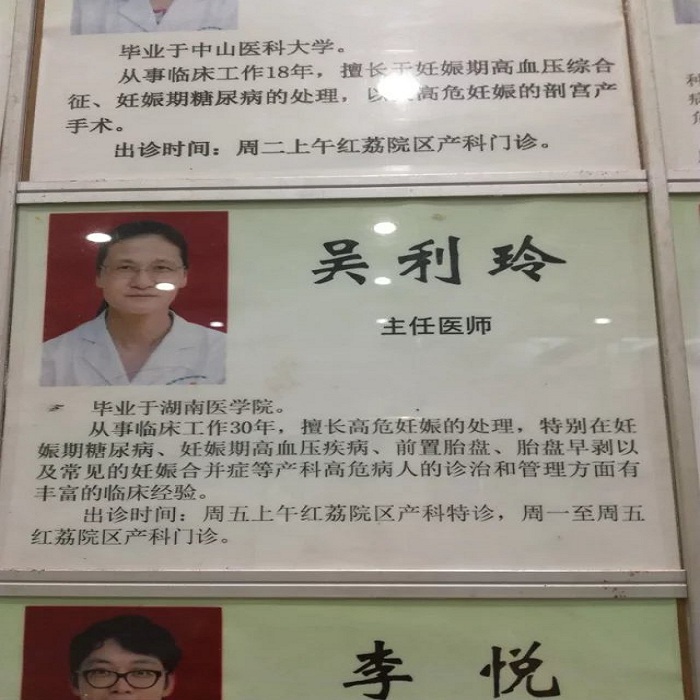 毕业于中山医科大学。
从事临床工作18年，擅长于妊娠期高血压综合
征、妊娠期糖尿病的处理，以及高危妊娠的剖宫产
手术。
出诊时间：周二上午红荔院区产科门诊。
吴利玲
主任医师
毕业于湖南医学院。
从事临床工作30年，擅长高危妊娠的处理，特别在妊
娠期糖尿病、妊娠期高血压疾病、前置胎盘、胎盘早剥以
及常见的妊娠合并症等产科高危病人的诊治和管理方面有
丰富的临床经验。
出诊时间：周五上午红荔院区产科特诊，周一至周五
红荔院区产科门诊。
李悦